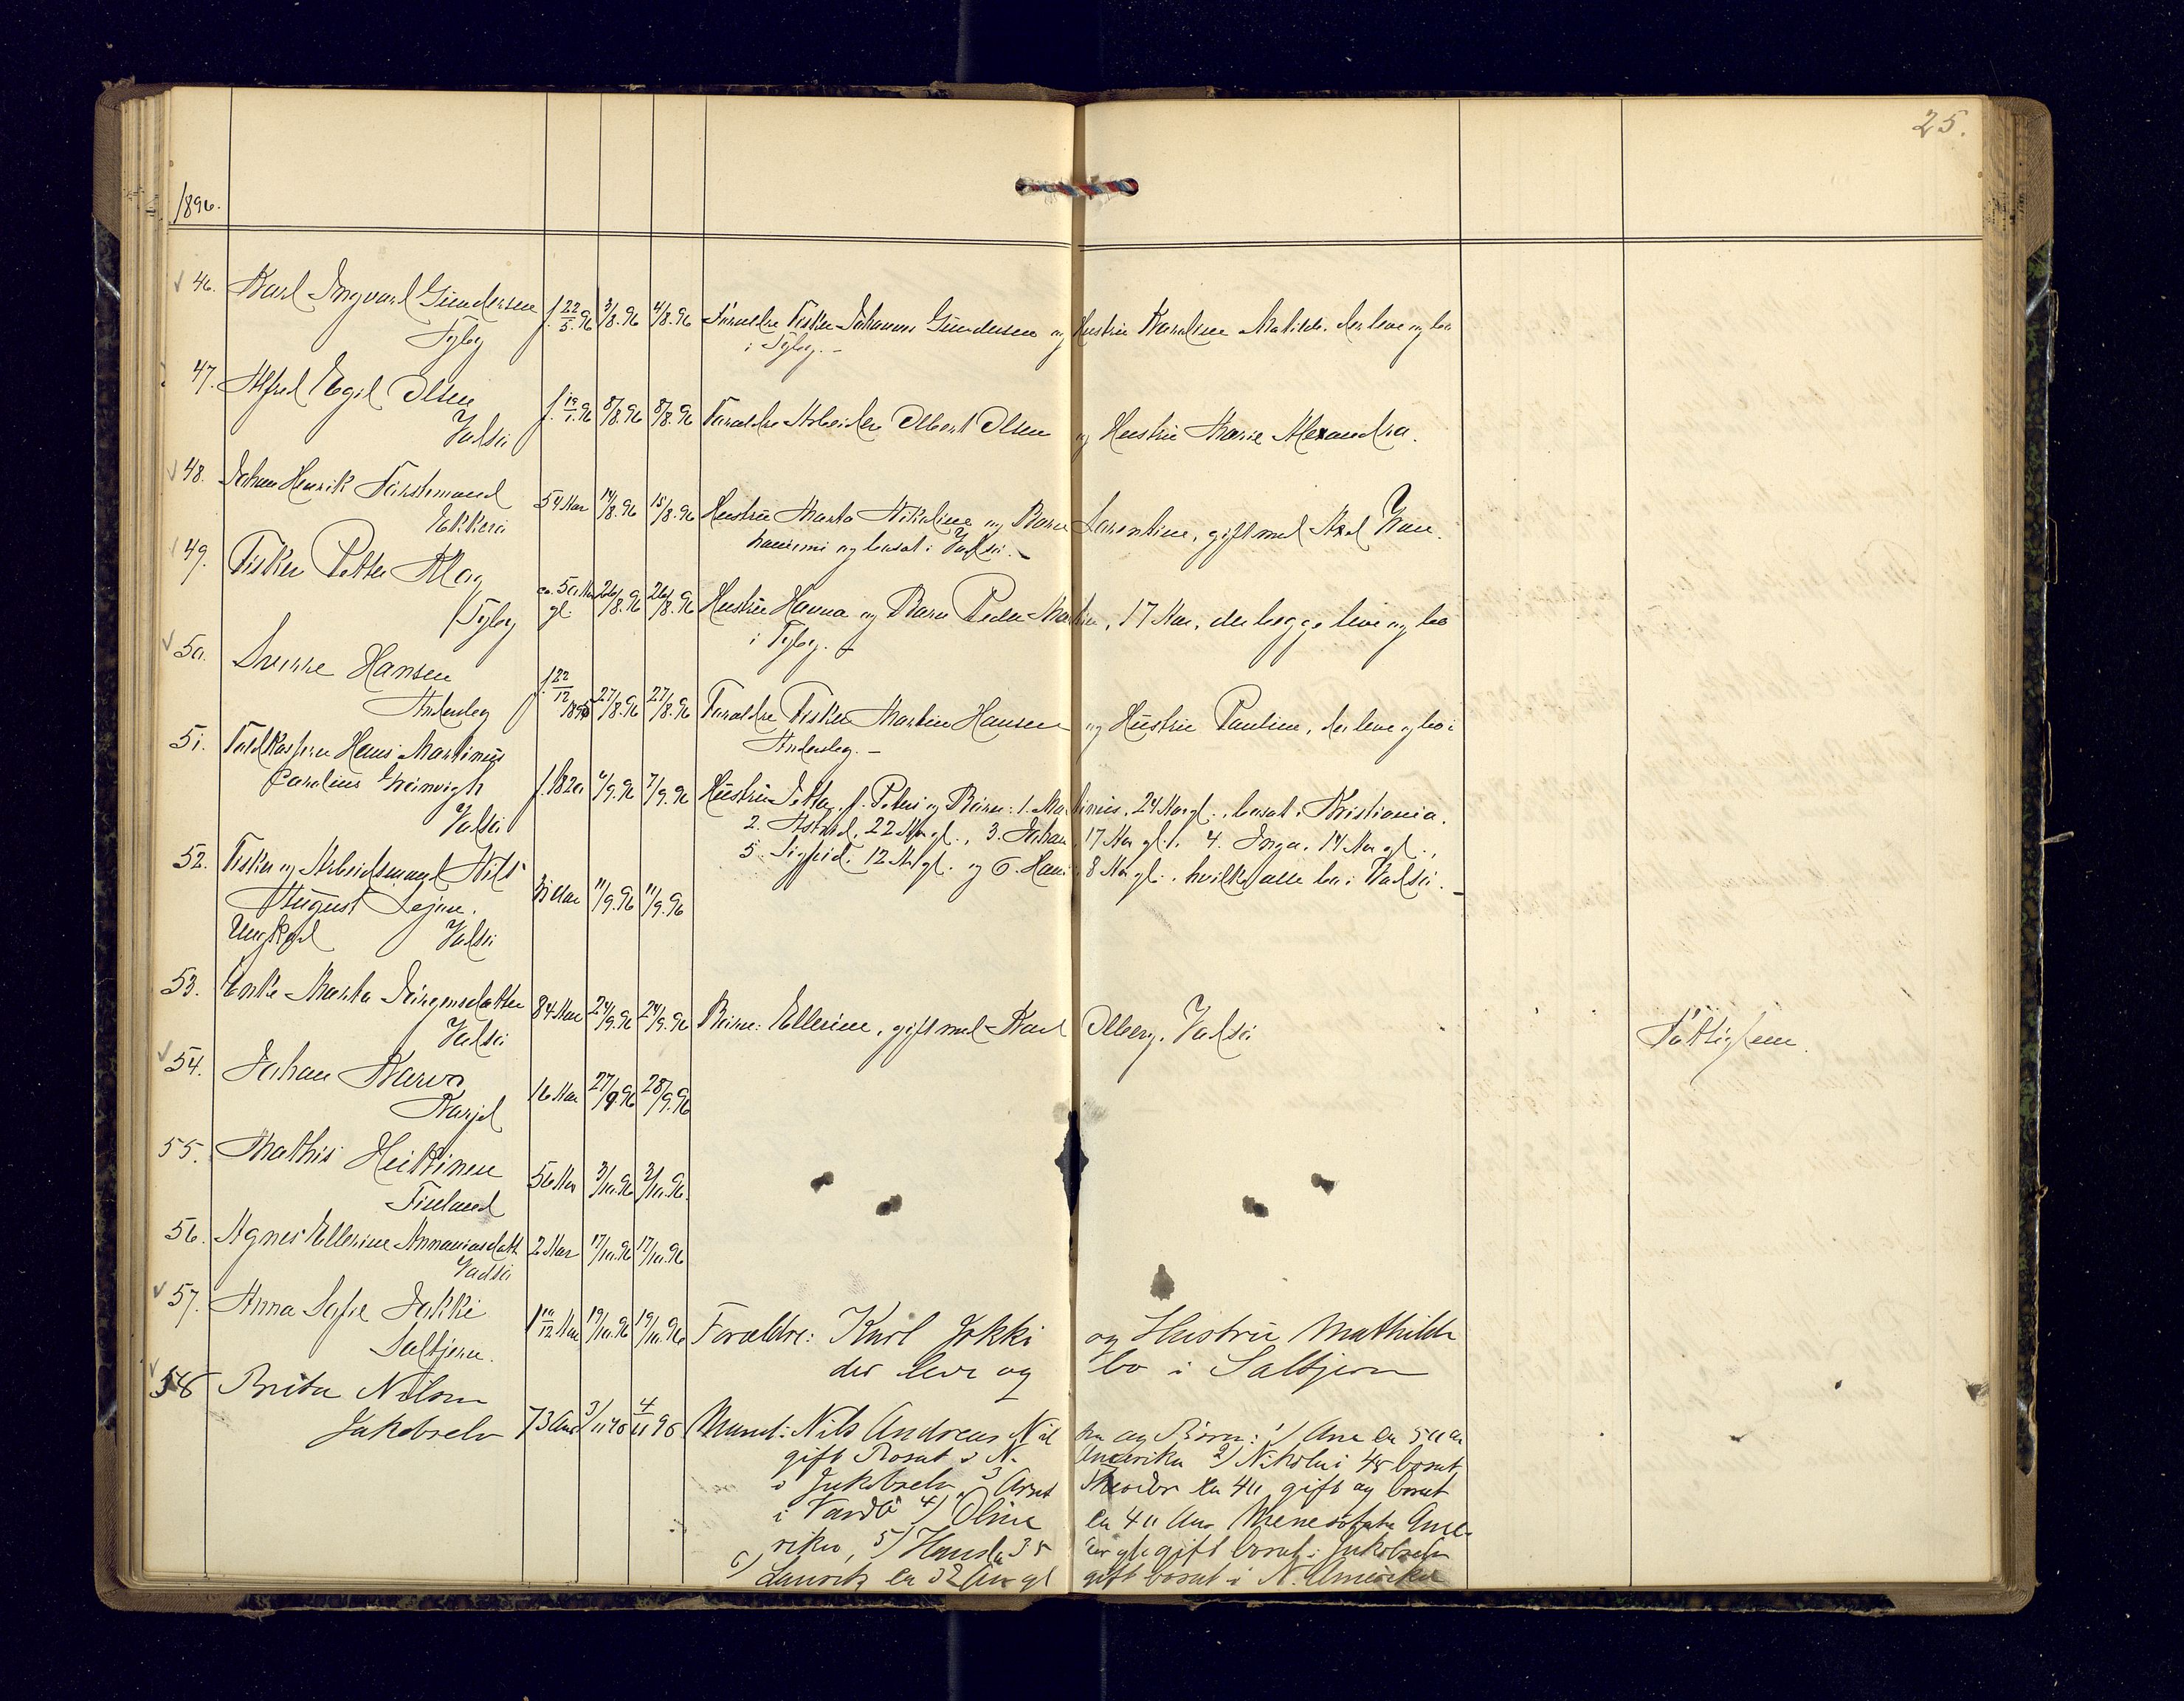 25.
1896.
46. Karl Ingvard Gundersen f. 22/5.96 3/8.96 4/8.96 Forældre Fisker Johannes Gundersen og Hustru Karoline Matilde, der leve og bo
Tyby i Tyby. –
47. Alfred Egil Olsen f. 19/1.96 8/8.96 8/8.96 Forældre Arbeider Albert Olsen og Hustru Marie Alexandra.
Vadsö
48. Johan Henrik 54 Aar 14/8.96 15/8.96 Hustru Marta Nikoline og Barn Laurentine, gift med Axel
Ekkerö og bosat i Vadsö. –
49. Fisker Petter Alag ca. 50 Aar gl. 26/8.96 26/8.96 Hustru Hanna og Barn Peder Martin, 17 Aar, der begge leve og bo
Tyby i Tyby. –
50. Sverre Hansen f. 22/12 1895 27/8.96 27/8.96 Forældre Fisker Martin Hansen og Hustru Pauline, der leve og bo i
Andersby Andersby. –
51. Toldkasserer Hans Martinus
Carolius f. 1820 6/9.96 7/9.96 Hustru Jetta, f. Peters og Börn: 1. Martinus, 24 Aar gl., bosat i Kristiania.
Vadsö 2. Astrid, 22 Aar gl., 3. Johan, 17 Aar gl., 4. Inga, 14 Aar gl.,
5. Sigrid, 12 Aar gl. og 6. Hans 8 Aar gl., hvilke alle bo i Vadsö. –
52. Fisker og Arbeidsmand Nils
August Lejon. 31 Aar 11/9.96 11/9.96
Ungkarl Vadsö
53. Enke Marta Jörgensdatter 84 Aar 24/9.96 24/9.96 Börn: Ellerine, gift med Karl Olberg, Vadsö Fattiglem.
Vadsö
54. Johan Karvo 16 Aar 27/9.96 28/9.96
Karjel
55. Mathis Heikinen 56 Aar 3/10.96 3/10.96
Finland
56. Agnes Ellerine Annaniasdatt. 2 Aar 17/10.96 17/10.96
Vadsö
57. Anna Sofie Jokki 1 10/12 Aar 19/10.96 19/10.96 Forældre: Karl Jokki og Hustru Mathilde
Saltjern. der leve og bo i Saltjern
58 Brita Nilsen
Jakobselv 73 Aar 3/11 96 4/11 96 Mand: Nils Andreas Nilsen og Börn: 1) Ane ca 50 aar
gift Bosat i N. Amerika 2) Nikolai 45 bosat
i Jakobselv 3 Arnt Theodor ca 40 gift og bosat
i Vardö 4) Oline ca 40 Aar Amerika,
5) Hans ca 35 aar gl. gift bosat i Jakobselv
6) Laurits ca 32 Aar gl gift bosat i N. Amerika